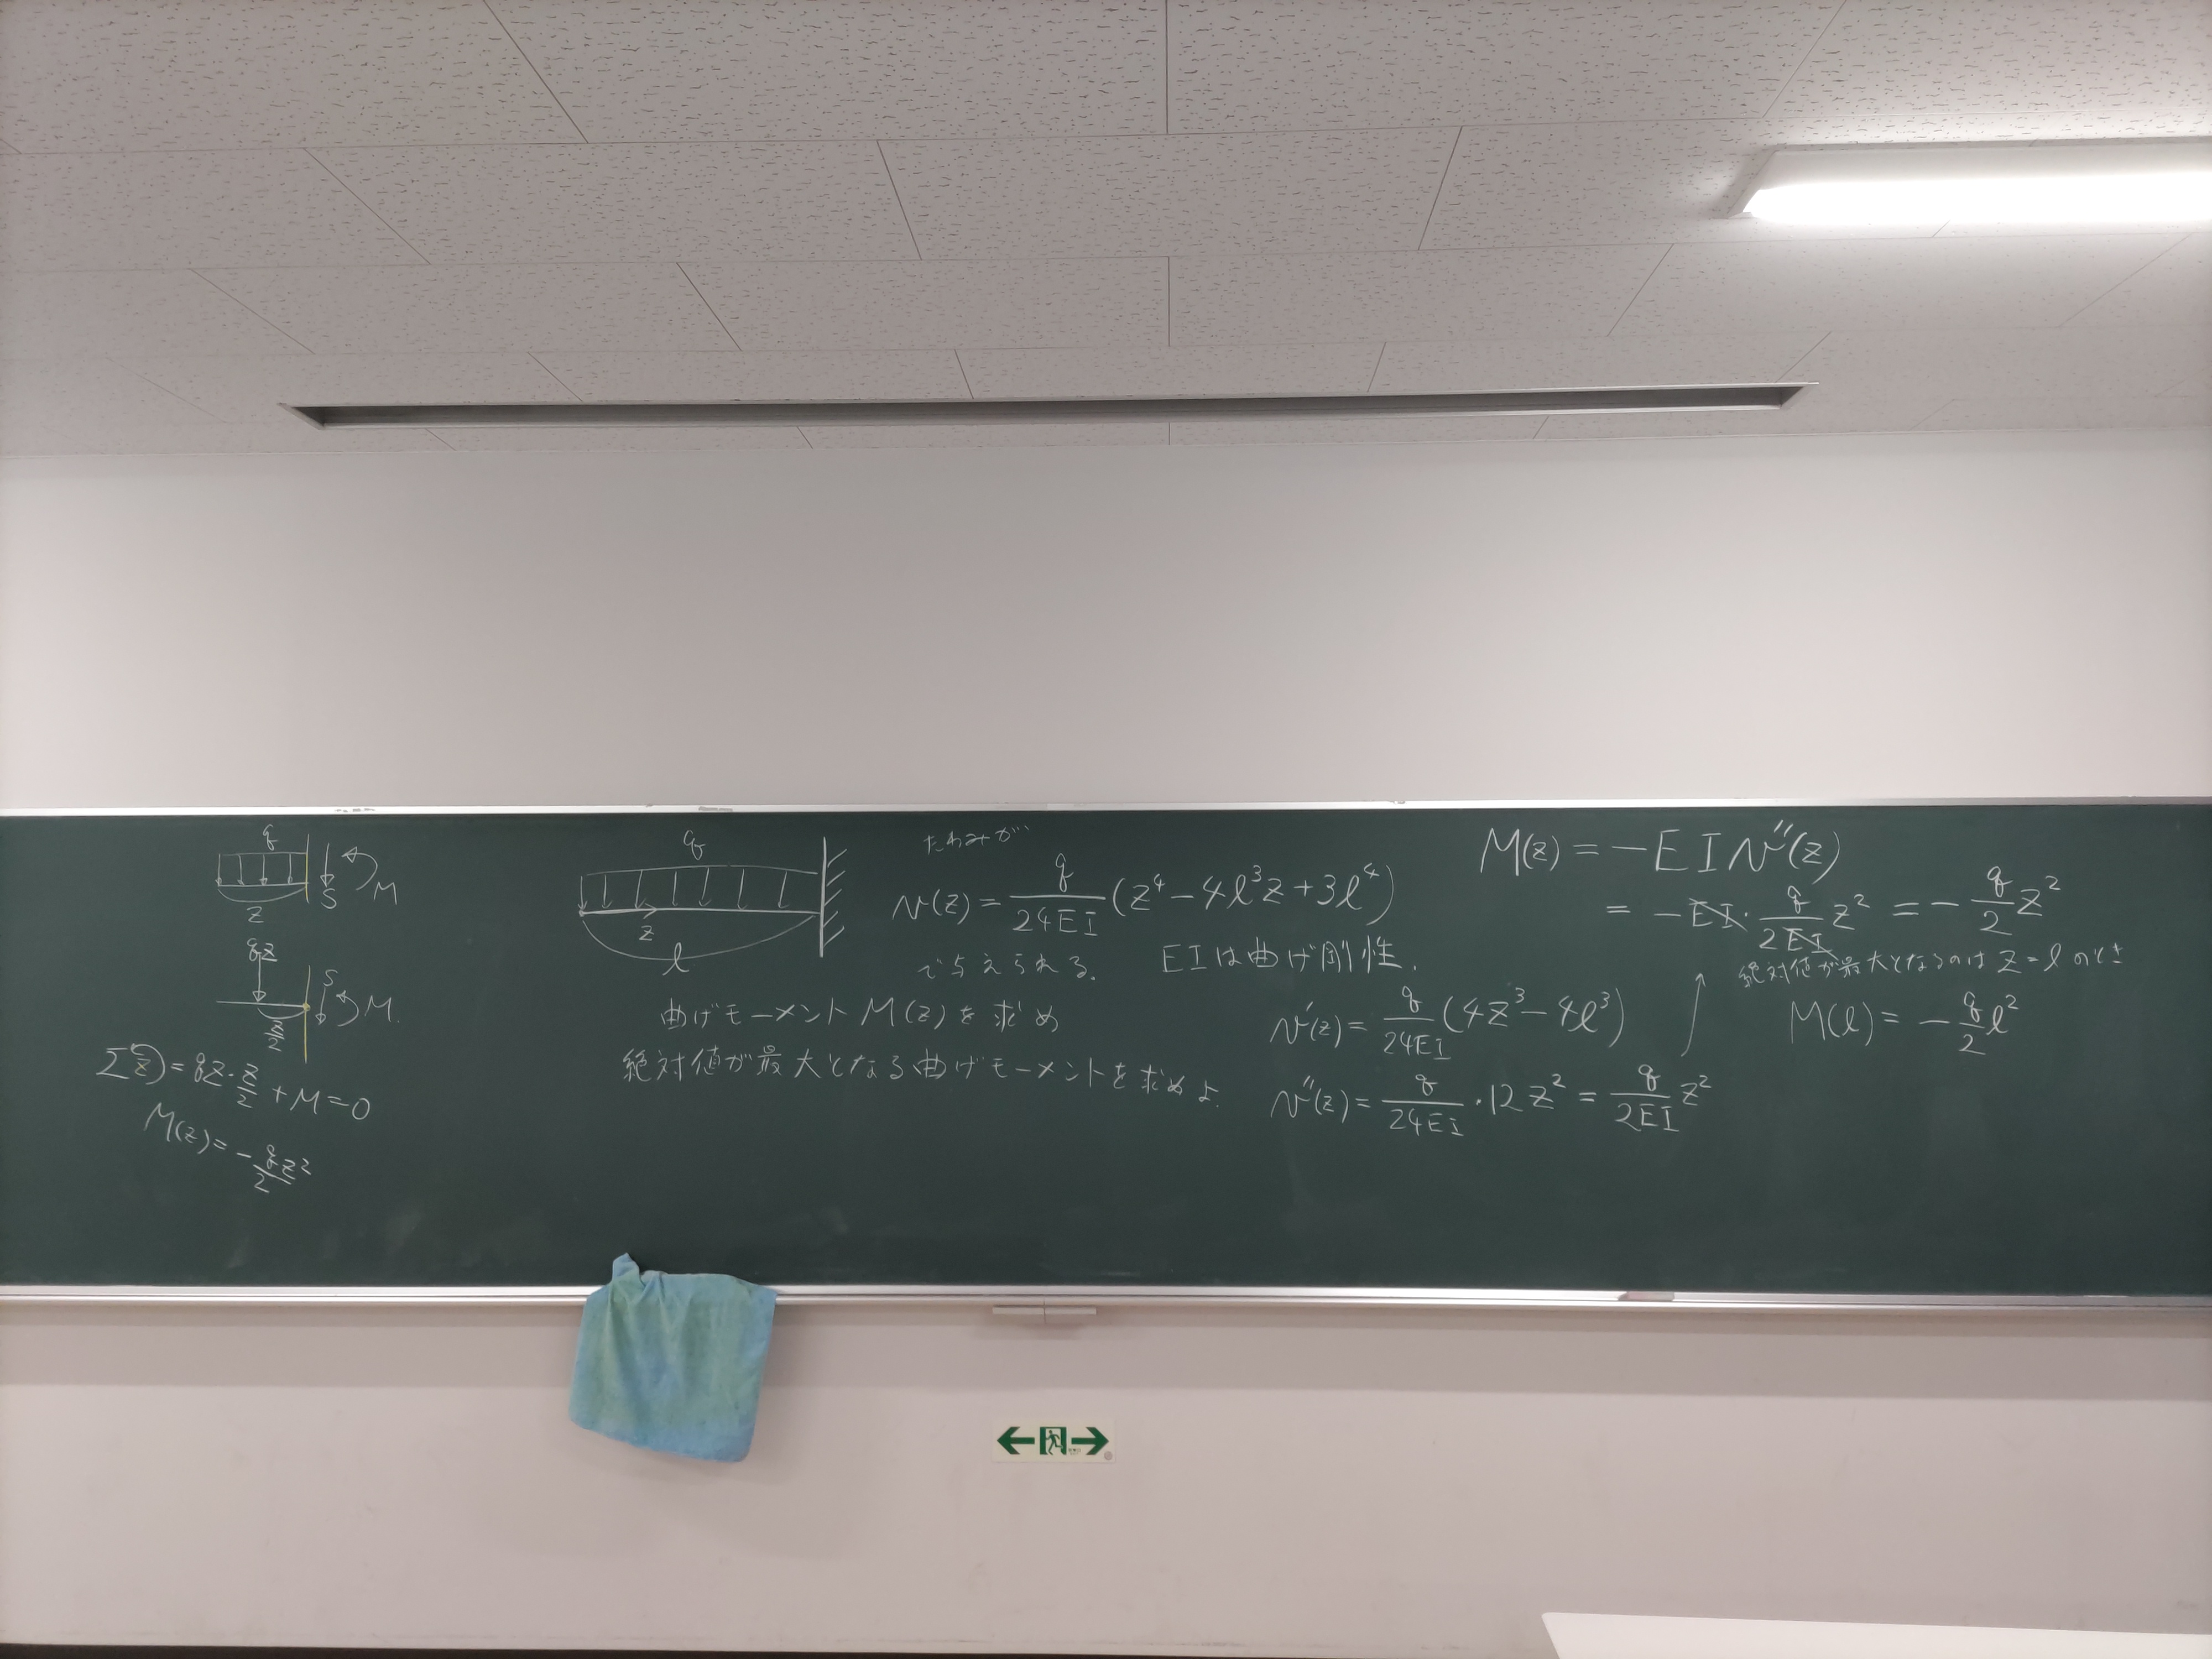 q
S
M
z
qz
S
M.
z/2
Σz) = qz・z/2 + M = 0
M(z) = - qz²/2
q
z
l
たわみが
v(z) = q/24EI (z⁴ - 4l³z + 3l⁴)
で与えられる. EIは曲げ剛性.
曲げモーメント M(z) を求め
絶対値が最大となる曲げモーメントを求めよ.
v'(z) = q/24EI (4z³ - 4l³)
v''(z) = q/24EI ・12 z² = q/2EI z²
M(z) = - E I v''(z)
= - EI・q/2EI z² = - q/2 z²
絶対値が最大となるのは z = l のとき
M(l) = - q/2 l²